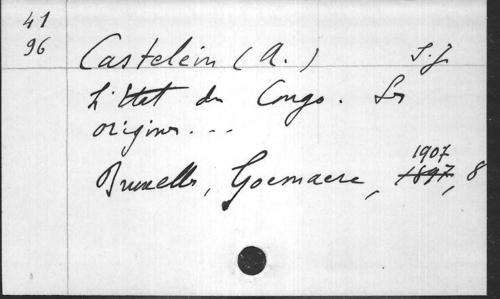 41
96
Castelein (A.) S.J.
L'Etat du Congo. Ses
origines...
Bruxelles, Goemaere, 1907
1897, 8